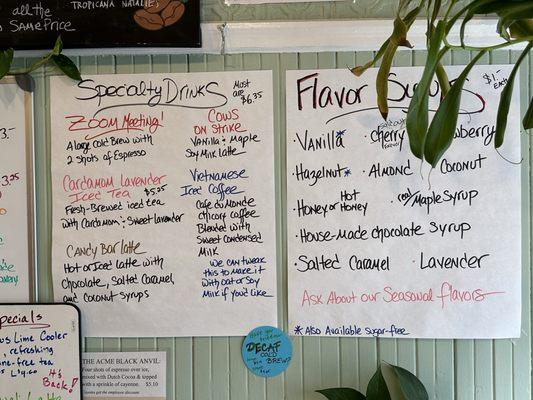 all the
SAME PRICE
TROPICANA NATALIE,
Specialty Drinks
Most are
$6.35
ZOOM MEETING!
A large Cold Brew with
2 shots of Espresso
Cardamom Lavender
Iced Tea $5.25
Fresh-Brewed iced tea
with Cardamom & Sweet lavender
CANDY BAR latte
Hot or Iced latte with
chocolate, Salted Caramel
and Coconut Syrups
Cows
on Strike
Vanilla & Maple
Soy Milk latte
Vietnamese
Iced Coffee
Cafe du Monde
chicory coffee
Blended with
Sweet Condensed
Milk
We can tweak
this to make it
with oat or Soy
Milk if you'd like
Flavor Syrups
$1.- each
Vanilla*
Cherry
Hazelnut*
Almond
Coconut
Honey or Hot Honey
(real) Maple Syrup
House-made chocolate Syrup
Salted Caramel
Lavender
Ask About our Seasonal flavors
*Also Available Sugar-free
DECAF
COLD
BREW
THE ACME BLACK ANVIL
Four shots of espresso over ice,
mixed with Dutch Cocoa & topped
with a sprinkle of cayenne. $5.10
Lime Cooler
refreshing
tea
It's
Back!